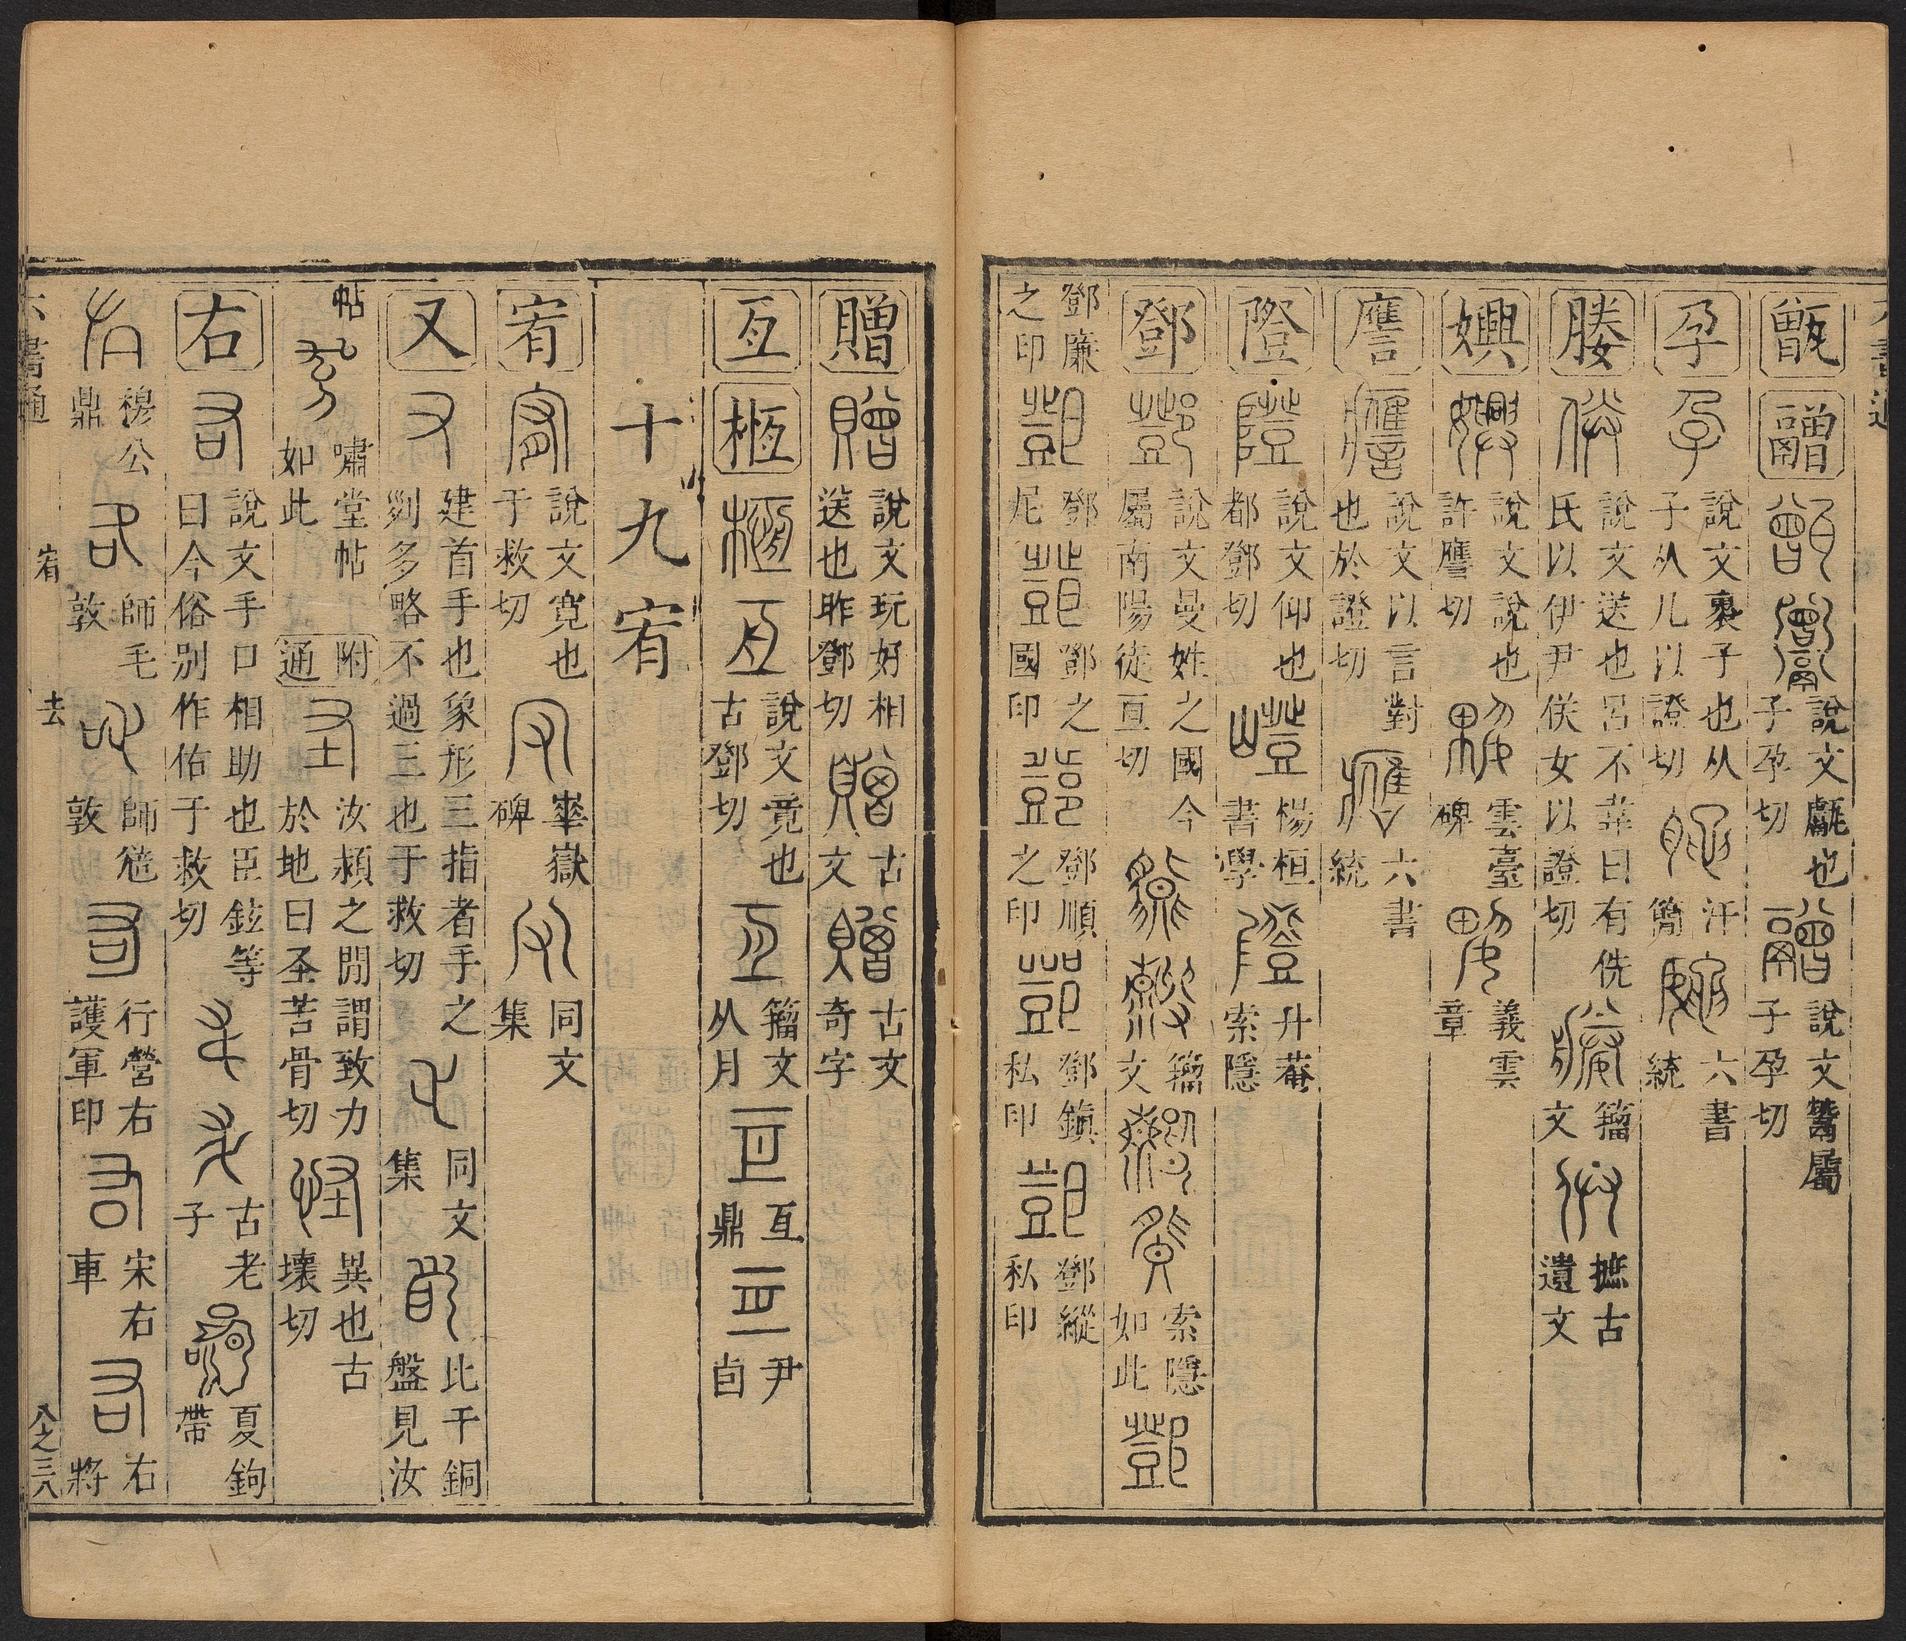 甑 䰝 說文甗也子孕切 說文鬵屬子孕切
孕 說文褱子也从子从几以證切 汗簡 六書統
媵 說文送也呂不韋曰有侁氏以伊尹俟女以證切 籀文 摭古遺文
嬹 說文說也許應切 雲臺碑 義雲章
譍 說文以言對也於證切 六書統
隥 說文仰也都鄧切 楊桓書學 升菴索隱
鄧 說文曼姓之國今屬南陽徒亘切 籀文 索隱如此
鄧廉之印 鄧尼 鄧之國印 鄧順之印 鄧鎮私印 鄧縱私印
贈 說文玩好相送也昨鄧切 古文 古文奇字
亙 㮓 說文竟也古鄧切 籀文从月 亙鼎 尹卣
十九宥
宥 說文寬也于救切 華嶽碑 同文集
又 建首手也象形三指者手之列多略不過三也于救切 同文集 比干銅盤見汝
帖 嘯堂帖如此 附通 汝潁之閒謂致力於地曰圣苦骨切 異也古壞切
右 說文手口相助也臣鉉等曰今俗別作佑于救切 古老子 夏鉤帶
穆公鼎 師毛敦 師敦 行營右護軍印 宋右車 右將
六書通 宥 去 八之三八